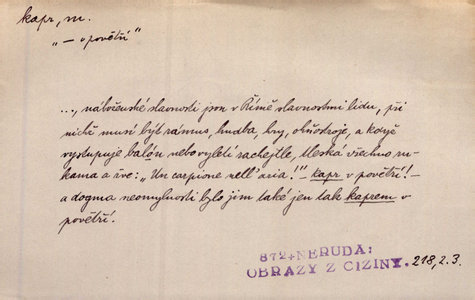 kapr, m.
"— v povětří"
..., náboženské slavnosti jsou v Římě slavnostmi lidu, při
nichž musí být rámus, hudba, hry, ohňostroje, a když
vystupuje balón nebo vyletí rachejtle, tleská všechno ru-
kama a řve: „Un carpione nell'aria!" — kapr v povětří! —
a dogma neomylnosti bylo jim také jen tak kaprem v
povětří.
872+NERUDA:
OBRAZY Z CIZINY. 218, 2.3.